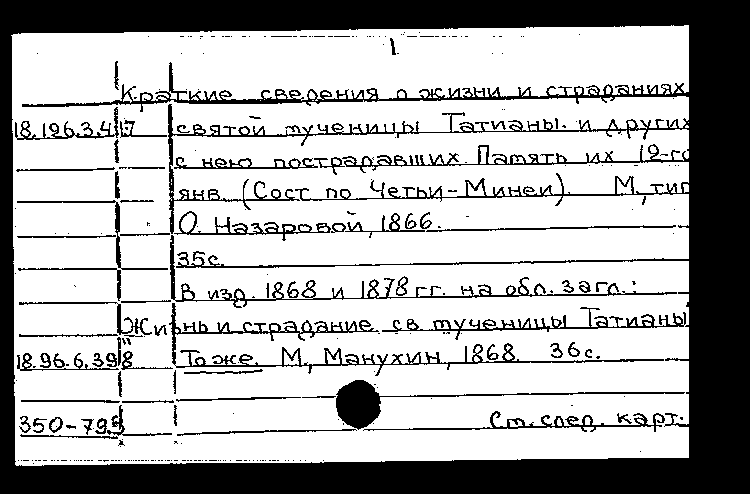 1
Краткие сведения о жизни и страданиях
18.126.3.417 святой мученицы Татианы и других
с нею пострадавших. Память их 12-го
янв. (Сост по Четьи-Минеи). М., тип
О. Назаровой, 1866.
35с.
В изд. 1868 и 1878 гг. на обл. загл.:
Жизнь и страдание св мученицы Татианы
18.96.6.398 То же. М., Манухин, 1868. 36с.
350-795 См. след. карт.